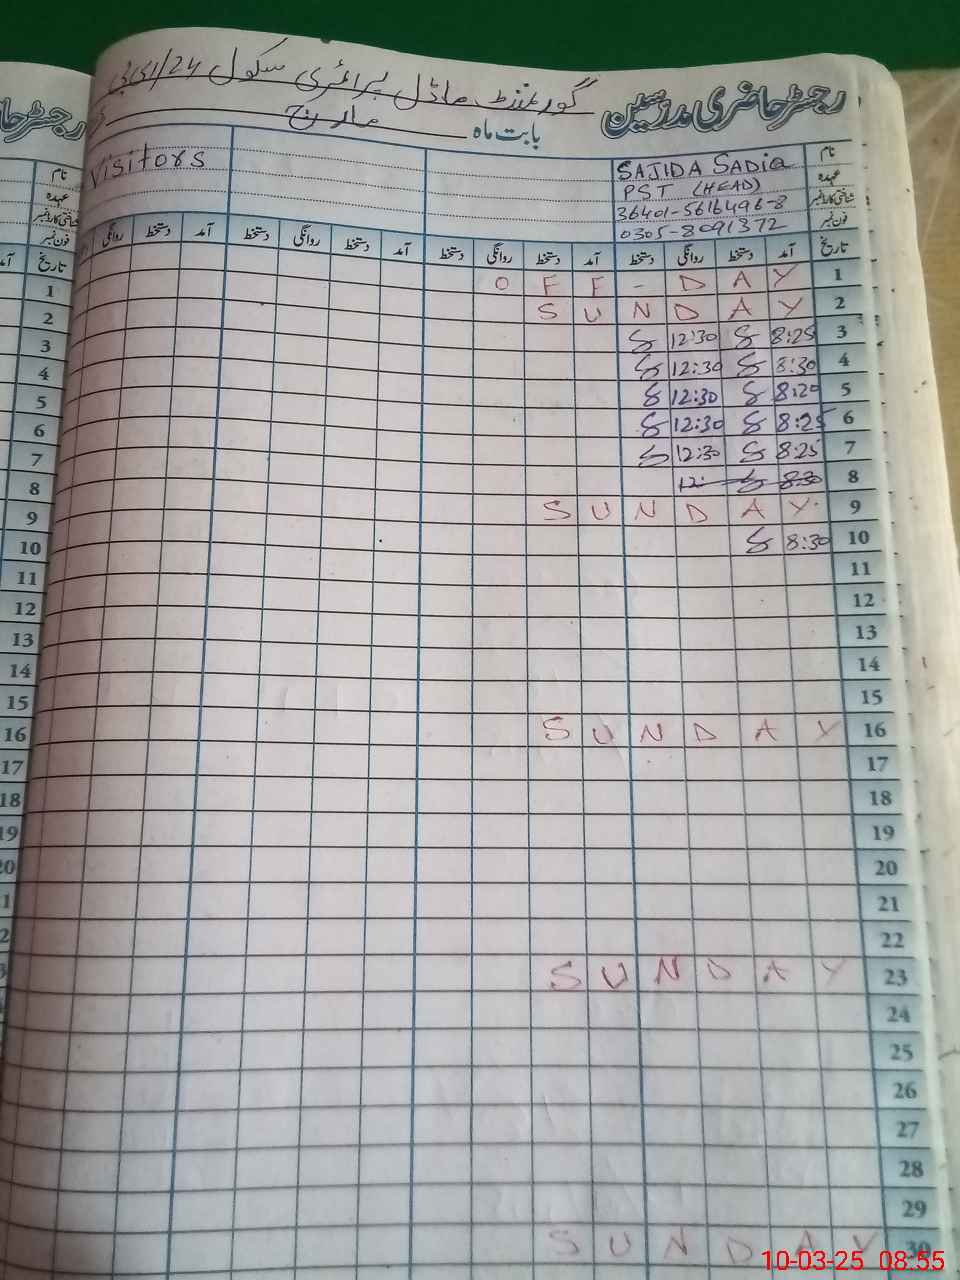 گورنمنٹ ماڈل پرائمری سکول
رجسٹر حاضری مدرسین
بابت ماہ مارچ
نام SAJIDA SADIQ Visitors
عہدہ PST (HEAD)
شناختی کارڈ نمبر 36401-5616496-8
فون نمبر 0305-8091372
تاریخ آمد دستخط روانگی دستخط آمد دستخط روانگی دستخط آمد دستخط روانگی دستخط آمد دستخط روانگی
1 OFF-DAY
2 SUNDAY
3 8:25 12:30
4 8:30 12:30
5 8:20 12:30
6 8:25 12:30
7 8:25 12:30
8 8:30 12:
9 SUNDAY
10 8:30
11
12
13
14
15
16 SUNDAY
17
18
19
20
21
22
23 SUNDAY
24
25
26
27
28
29
30 SUNDAY
رجسٹر حا
نام
عہدہ
شناختی کارڈ نمبر
فون نمبر
تاریخ آمد
1
2
3
4
5
6
7
8
9
10
11
12
13
14
15
16
17
18
19
10-03-25 08:55